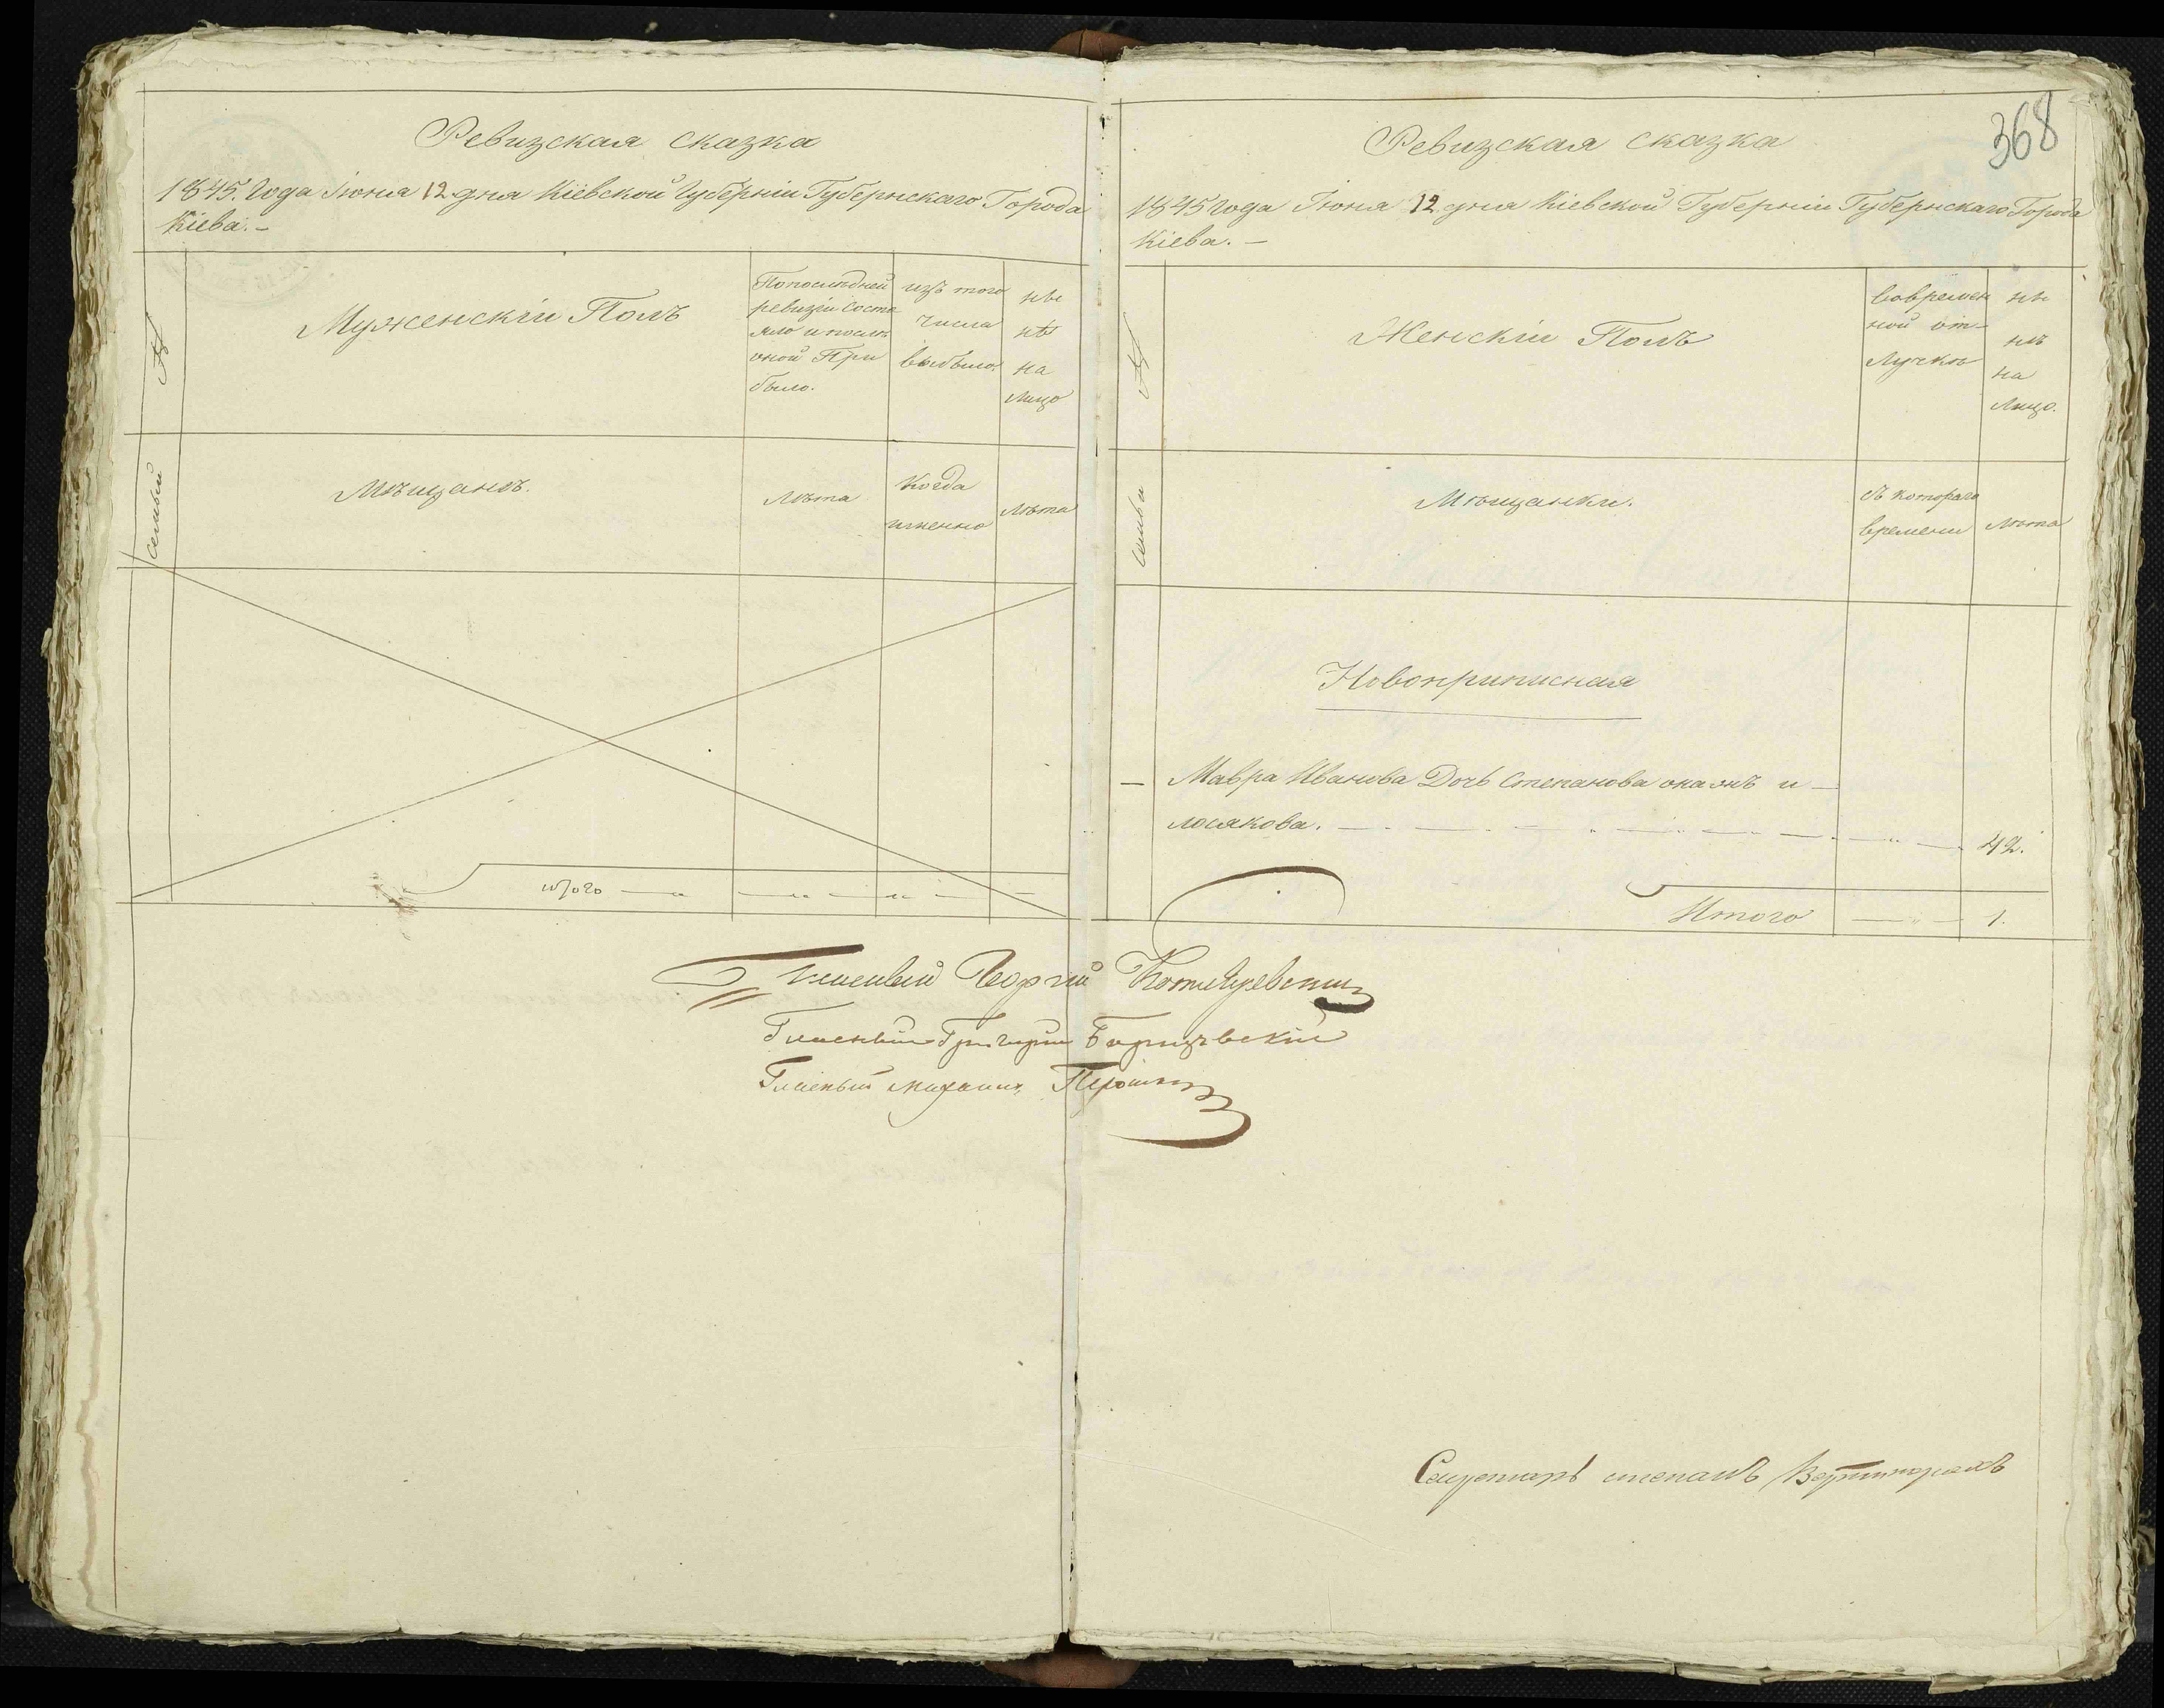 Ревизская сказка
1845. Года Іюня 12 дня Кіевской Губерніи Губернскаго Города
Кіева. —
№
Мужескій Полъ
По последней
ревизіи состо
яло и послѣ
оной При
было.
изъ того
числа
выбыло.
ны
нѣ
на
лицо
семьи
Мѣщанъ.
Лѣта
Когда
именно
Лѣта
итого
368
Ревизская сказка
1845 года Іюня 12 дня Кіевской Губерніи Губернскаго Города
Кіева. —
№
Женскій Полъ
вовремен
ной от-
лучкѣ
ны
нѣ
на
лицо.
семьи
Мѣщанки.
съ котораго
времени
лѣта
Новоприписная
— Мавра Иванова Дочь Степанова онажъ и —
лосякова. 42.
Итого 1.
Гласный Георгій
Гласный Григорій
Гласный Михаилъ
Секретарь степанъ